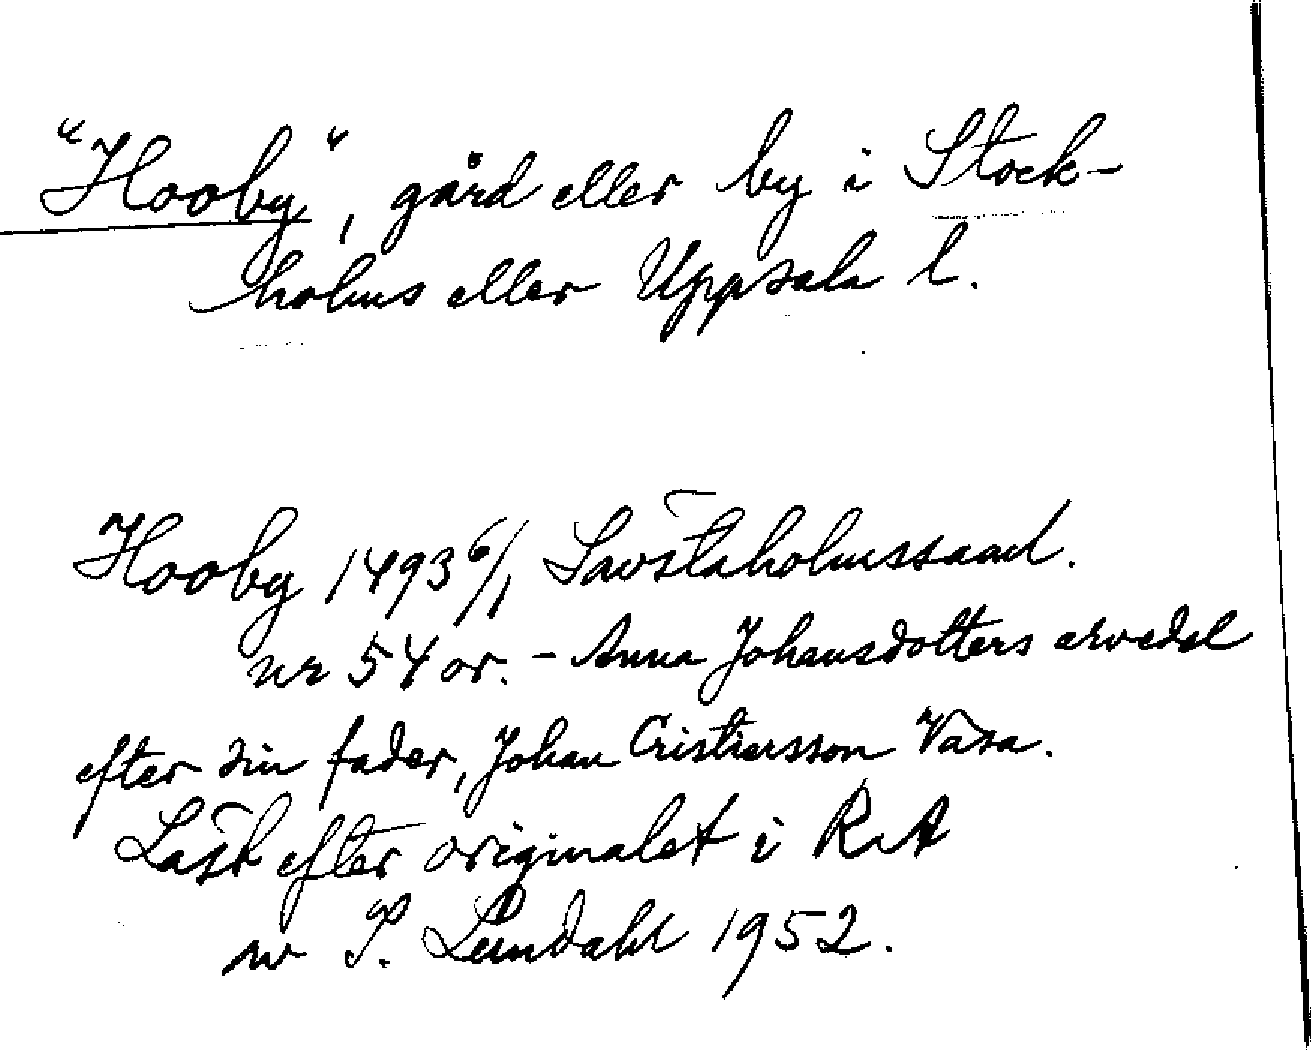 "Hooby", gård eller by i Stock-
holms eller Uppsala l.
Hooby 1493 6/1 Sävstaholmssaml.
nr 54 or. - Anna Johansdotters arvedel
efter sin fader, Johan Cristiersson Vasa.
Läst efter originalet i RA
av P. Lindahl 1952.